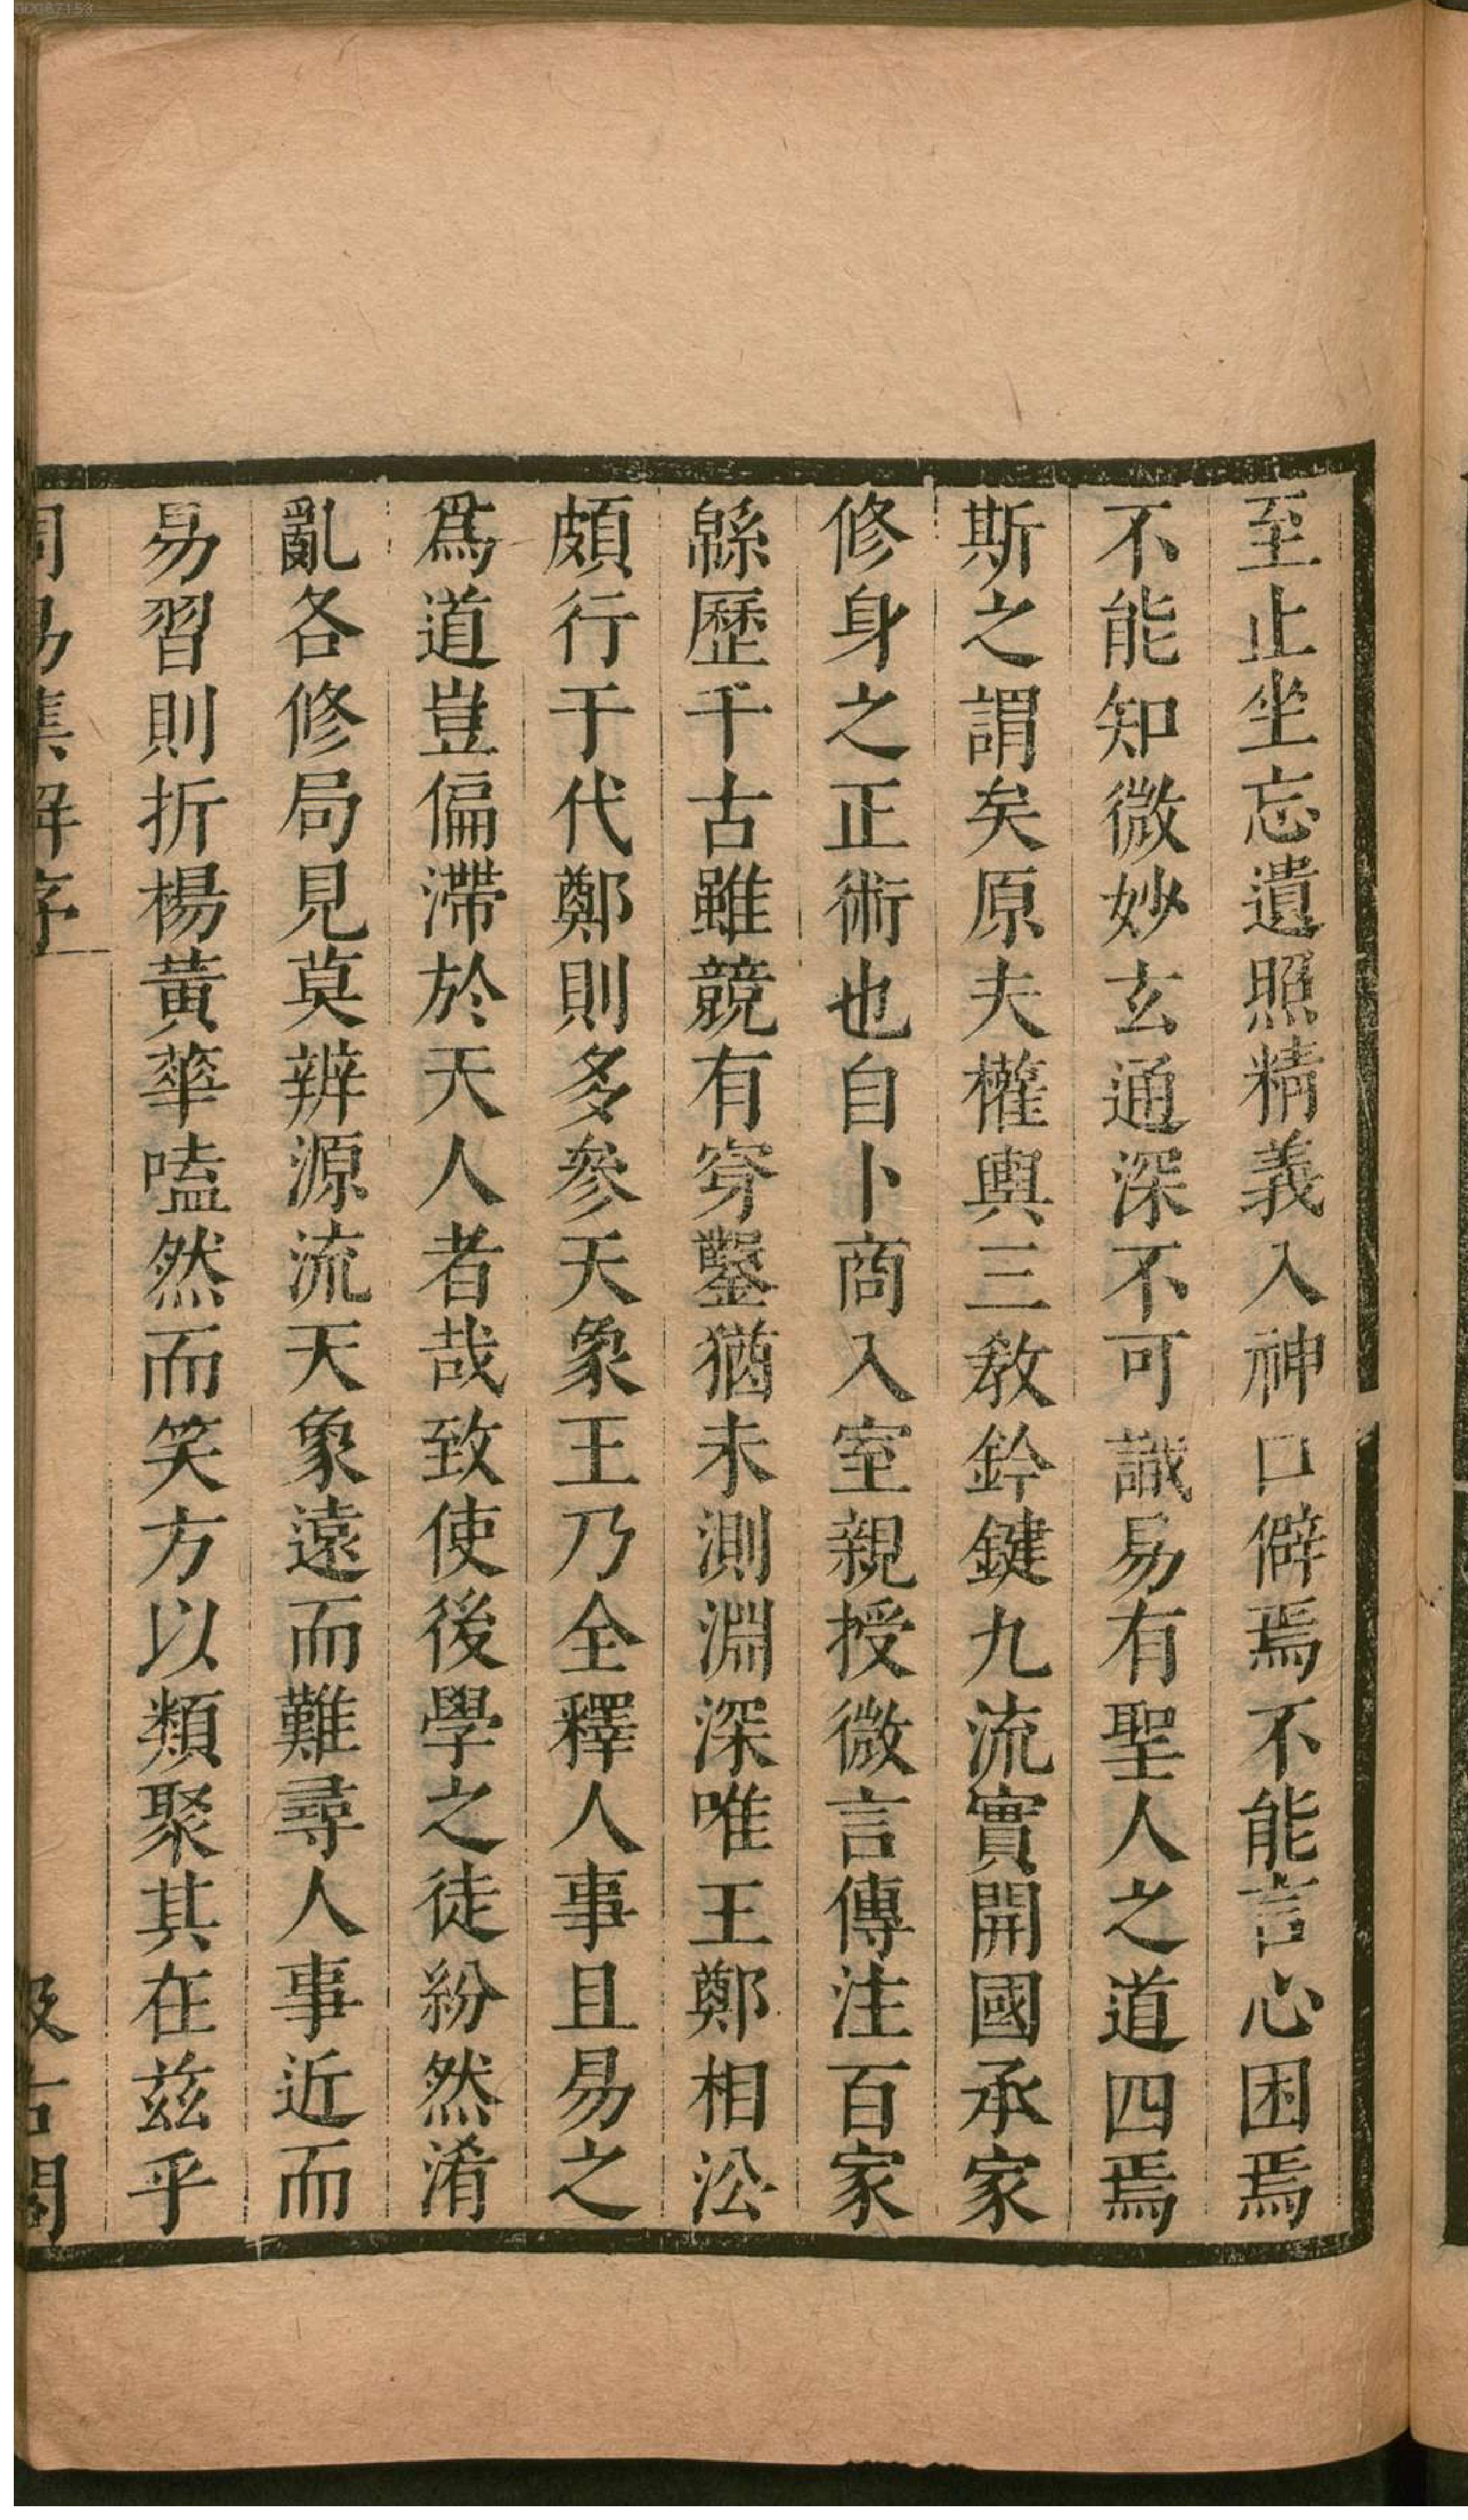 至止坐忘遺照精義入神口僻焉不能言心困焉
不能知微妙玄通深不可識易有聖人之道四焉
斯之謂矣原夫權輿三教鈐鍵九流實開國承家
修身之正術也自卜商入室親授微言傳注百家
緜歷千古雖競有穿鑿猶未測淵深唯王鄭相沿
頗行于代鄭則多參天象王乃全釋人事且易之
爲道豈偏滯於天人者哉致使後學之徒紛然淆
亂各修局見莫辨源流天象遠而難尋人事近而
易習則折楊黃華嗑然而笑方以類聚其在茲乎
周易集解序
汲古閣
00087153